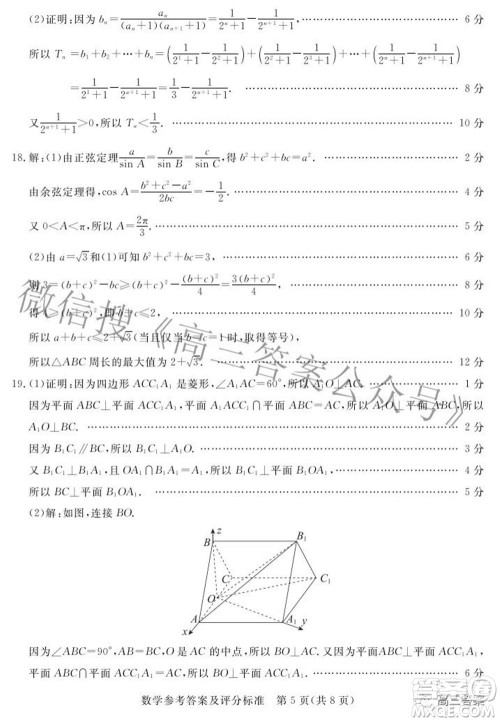 (2)证明:因为 bₙ=aₙ/((aₙ+1)(aₙ₊₁+1))=1/(2ⁿ+1)-1/(2ⁿ⁺¹+1), …… 6 分
所以 Tₙ=b₁+b₂+…+bₙ=(1/(2¹+1)-1/(2²+1))+(1/(2²+1)-1/(2³+1))+…+(1/(2ⁿ+1)-1/(2ⁿ⁺¹+1))
=1/(2¹+1)-1/(2ⁿ⁺¹+1)=1/3-1/(2ⁿ⁺¹+1). …… 8 分
又1/(2ⁿ⁺¹+1)>0,所以 Tₙ<1/3. …… 10 分
18.解:(1)由正弦定理a/sin A=b/sin B=c/sin C,得 b²+c²+bc=a². …… 2 分
由余弦定理得,cos A=(b²+c²-a²)/2bc=-1/2. …… 4 分
又 0<A<π,所以 A=2π/3. …… 5 分
(2)由 a=√3和(1)可知 b²+c²+bc=3, …… 6 分
则 3=(b+c)²-bc≥(b+c)²-(b+c)²/4=3(b+c)²/4, …… 8 分
得(b+c)²≤4,即b+c≤2, …… 10 分
所以 a+b+c≤2+√3(当且仅当 b=c=1时,取等号).
所以△ABC 周长的最大值为 2+√3. …… 12 分
19.(1)证明:因为四边形 ACC₁A₁ 是菱形,∠A₁AC=60°,所以 A₁O⊥AC. …… 1 分
因为平面 ABC⊥平面 ACC₁A₁,平面 ABC∩平面 ACC₁A₁=AC,所以 A₁O⊥平面 ABC,所以
A₁O⊥BC. …… 2 分
因为 B₁C₁∥BC,所以 A₁O⊥B₁C₁. …… 3 分
又 B₁C₁⊥B₁A₁,且 OA₁∩B₁A₁=A₁,所以 B₁C₁⊥平面 B₁OA₁. …… 4 分
所以 BC⊥平面 B₁OA₁. …… 5 分
(2)解:如图,连接 BO.
z
B
B₁
C
C₁
O
A
A₁
x
y
因为∠ABC=90°,AB=BC,O 为 AC 的中点,所以 BO⊥AC. 又因为平面 ABC⊥平面 ACC₁A₁,
平面 ABC∩平面 ACC₁A₁=AC,所以 BO⊥平面 ACC₁A₁. …… 6 分
数学参考答案及评分标准 第 5 页(共 8 页)
微信搜《高三答案公众号》
高三答案